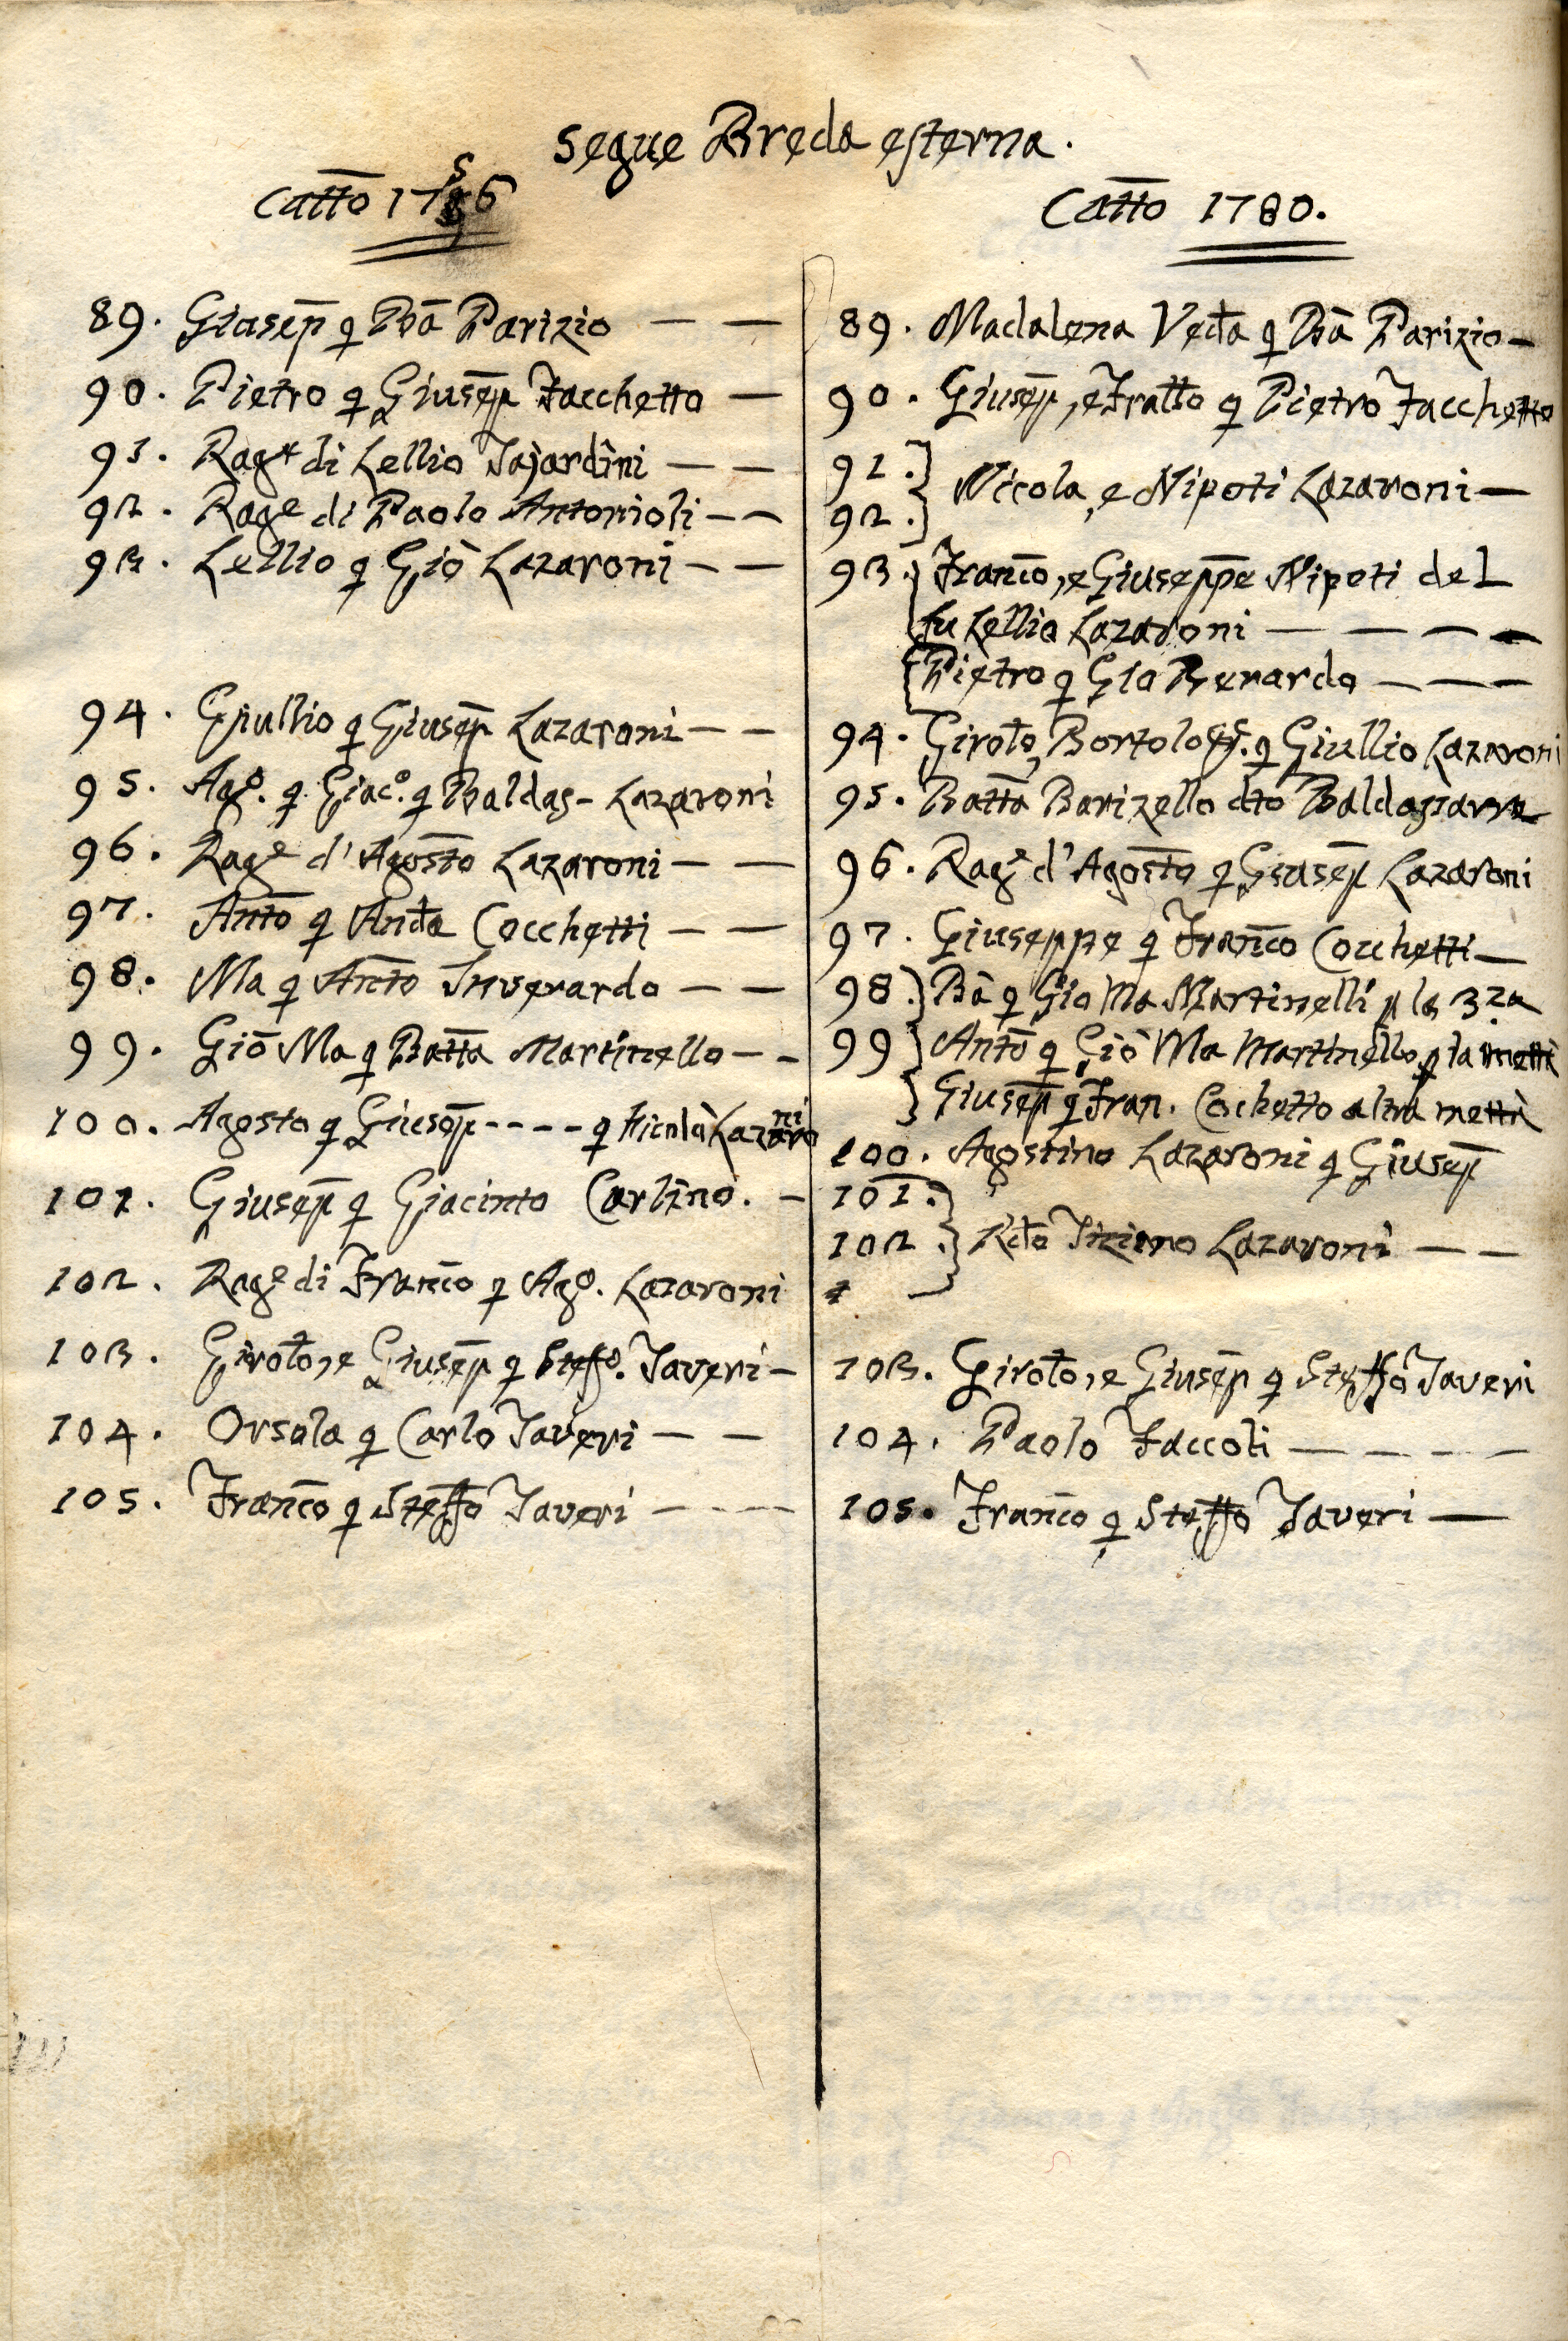 segue Breda esterna.
Catto 1756
89. Giusep q Ba Parizio — —
90. Pietro q Giusep Facchetto —
91. Rage di Lellio Tajardini — —
92. Rage di Paolo Antonioli — —
93. Lellio q Giò Lazaroni — —
94. Giullio q Giusep Lazaroni — —
95. Ago. q. Giaco. q Baldas- Lazaroni
96. Rage d'Agosto Lazaroni — —
97. Anto q Anda Cocchetti — —
98. Ma q Anto Inverardo — —
99. Giō Ma q Batta Martinello — -
100. Agosto q Giusep - - - - q Nicolà Lazaroni
101. Giusep q Giacinto Carlino. —
102. Rage di Franco q Ago. Lazaroni
103. Giroto, e Giusep q Steffo. Taveri —
104. Orsola q Carlo Taveri — —
105. Franco q Steffo Taveri — - - -
Catto 1780.
89. Madalena Veda q Bā Parizio —
90. Giusep, e Fratto q Pietro Facchetto
91. }
92. } Nicola, e Nipoti Lazaroni —
93. { Franco, e Giuseppe Nipoti del
fu Lellio Lazaroni — — — —
{ Pietro q Gio Berardo — — —
94. Giroto, Bortolo q Giullio Lazaroni
95. Batta Barizello dto Baldassarre
96. Rage d'Agosto q Giusep Lazaroni
97. Giuseppe q Franco Cocchetti —
98. } Bā q Gio Ma Martinelli p la 3za
99 } Anto q Giò Ma Martinello p la mettà
} Giusep q Fran. Cochetto altra mettà
100. Agostino Lazaroni q Giusep
101. }
102. } Rdo Tiziano Lazaroni — —
103. Giroto, e Giusep q Steffo Taveri
104. Paolo Faccoli — — — —
105. Franco q Steffo Taveri —